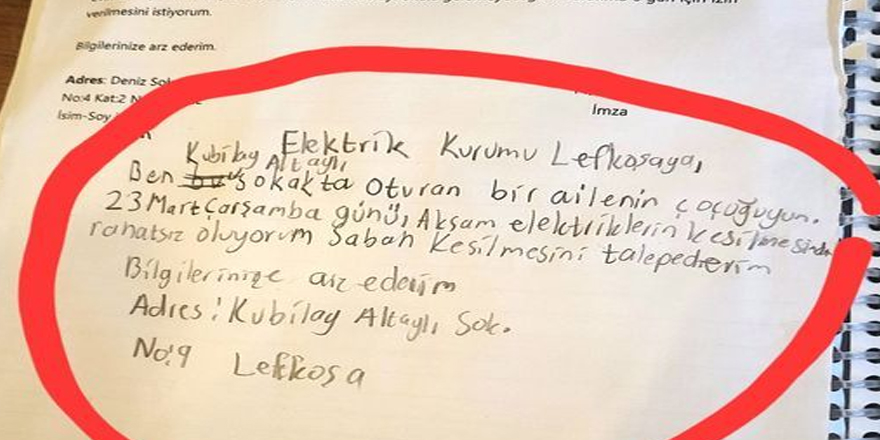 verilmesini istiyorum.
Bilgilerinize arz ederim.
Adres: Deniz
No:4 Kat:2
İsim-Soy
İmza
Elektrik Kurumu Lefkoşaya,
Kubilay Altaylı
Ben bu sokakta oturan bir ailenin çocuğuyun.
23 Mart Çarşamba günü, Akşam elektriklerin kesilmesinden
rahatsız oluyorum Sabah kesilmesini talepederim
Bilgilerinize arz ederim
Adres: Kubilay Altaylı Sok.
No:9 Lefkoşa